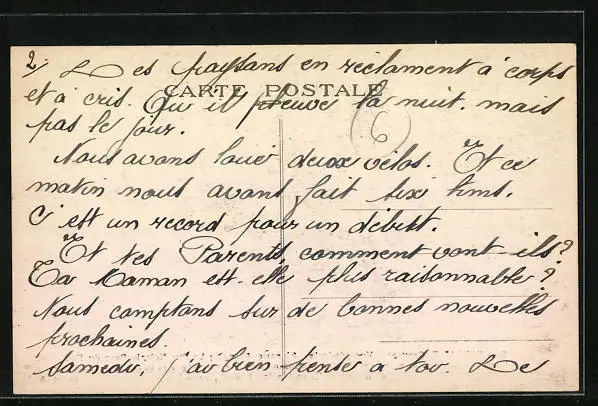 2. Les paysans en réclament à corps
CARTE POSTALE
et à cris. Qu'il pleuve la nuit. mais
pas le jour.
6
Nous avons loué deux vélos. Et ce
matin nous avons fait six kms.
C'est un record pour un début.
Et tes Parents, comment vont-ils?
Ta Maman est-elle plus raisonnable?
Nous comptons sur de bonnes nouvelles
prochaines.
Samedi, j'ai bien pensé à toi. Le